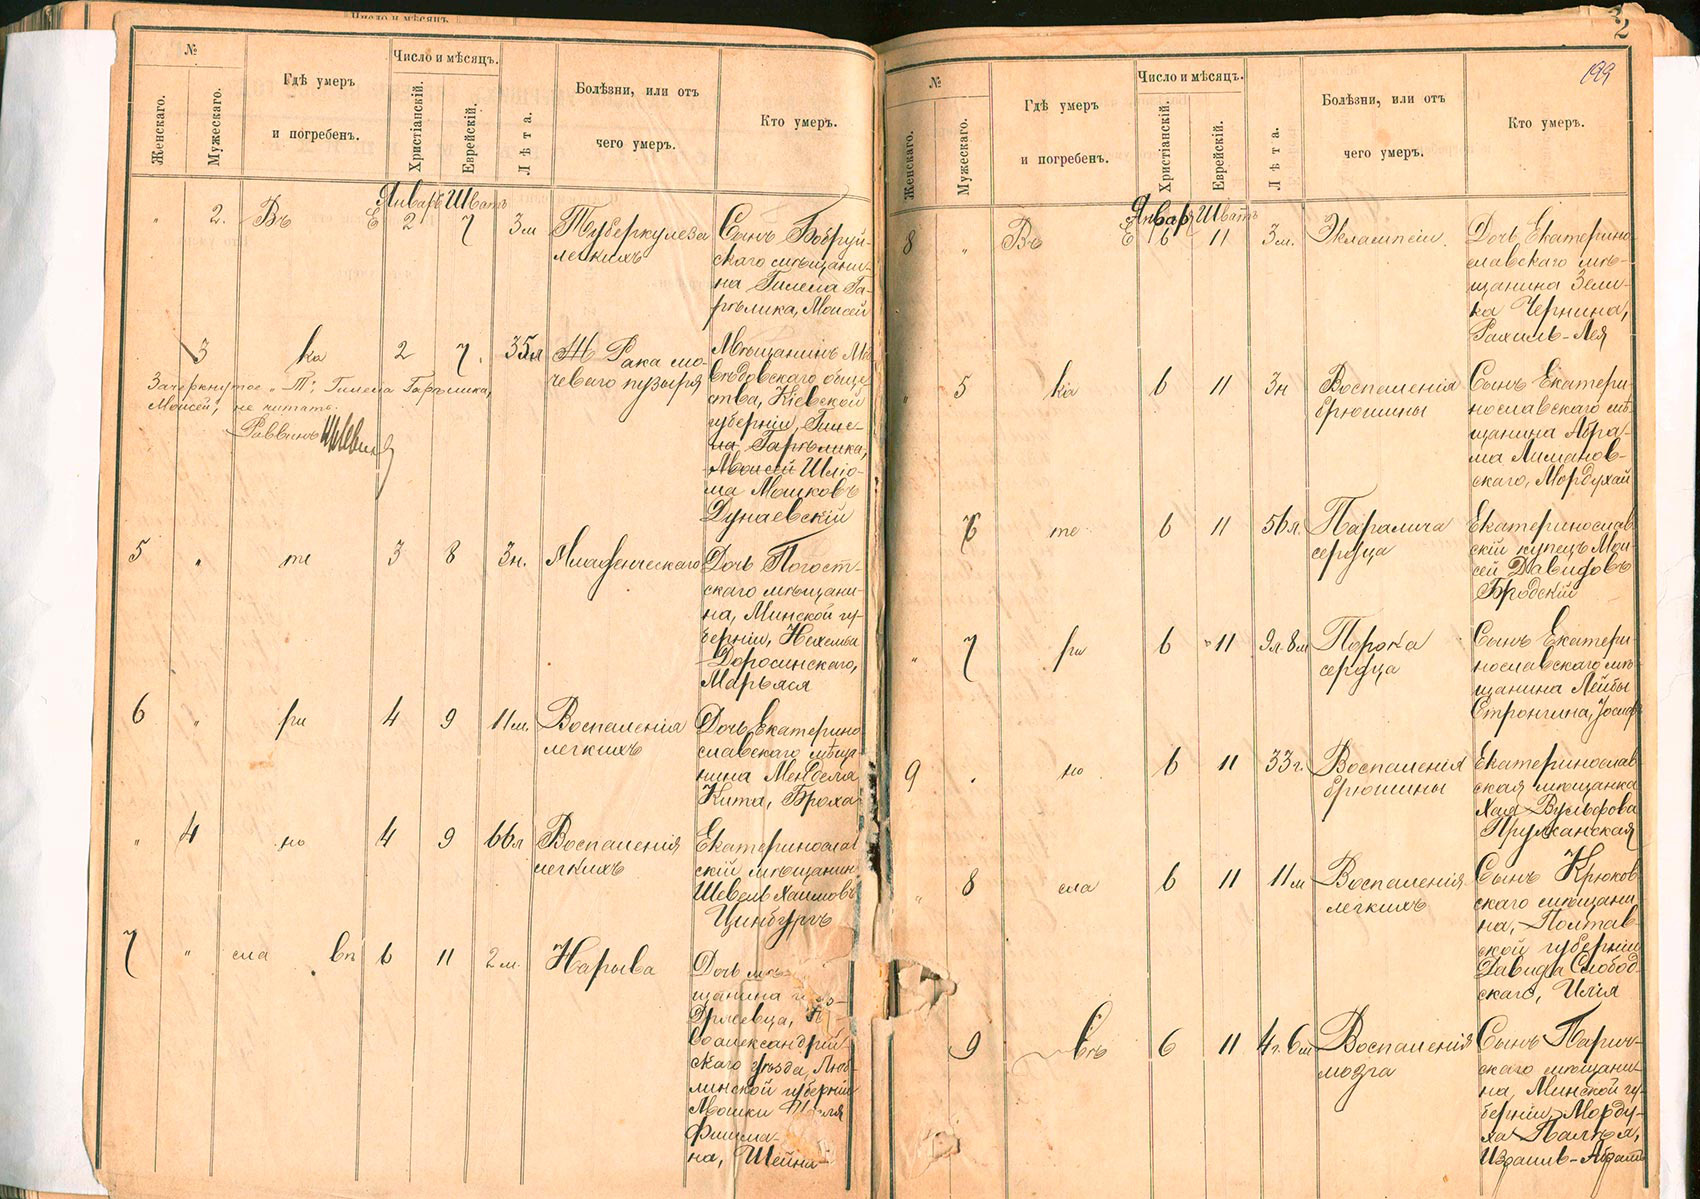 Число и мѣсяц
№
Женскаго.
Мужескаго.
Гдѣ умеръ
и погребенъ.
Число и мѣсяцъ.
Христіанскій.
Еврейскій.
Лѣта.
Болѣзни, или отъ
чего умеръ.
Кто умеръ.
Январь Шватъ
" 2. Въ Е 2 7 3м Туберкулеза
легкихъ
Сынъ Бобруй-
скаго мѣщани-
на Гилела Га-
рѣлика, Моисей
3 ка 2 7. 35л Рака мо-
чеваго пузыря
Мѣщанинъ
обще
ства, Кіевской
губерніи, Гиле-
ла Гарѣлика,
Моисей Шлio-
ма Мошковъ
Дунаевскій
Зачеркнутое "Т", Гилела Гарѣлика,
Моисей", не читать.
Раввинъ
5 " те 3 8 3н. Младенческаго
Дочь Погост-
скаго мѣщани-
на, Минской гу-
берніи, Нохема
Доросинскаго,
Марьяся
6 " ри 4 9 11м. Воспаленія
легкихъ
Дочь Екатерино
славскаго мѣща
нина Менделя
Кита, Броха
" 4 но 4 9 66л Воспаленія
легкихъ
Екатеринослав
скій мѣщанин
Шевель Хаимовъ
Цинбургъ
7 " сла вп 6 11 2м. Нарыва
Дочь мѣ-
щанина
воалександрій
скаго уѣзда, Люб-
линской губерніи
Мошки
Фишма-
на, Шейна
2
199
№
Женскаго.
Мужескаго.
Гдѣ умеръ
и погребенъ.
Число и мѣсяцъ.
Христіанскій.
Еврейскій.
Лѣта.
Болѣзни, или отъ
чего умеръ.
Кто умеръ.
Январь Шватъ
8 " Въ Е 6 11 3м. Эклампсіи.
Дочь Екатерино-
славскаго мѣ-
щанина Зели-
ка Чернина,
Рахиль-Лея
" 5 ка 6 11 3н Воспаленія
брюшины
Сынъ Екатери-
нославскаго мѣ-
щанина Абра-
ма Лиманов-
скаго, Мордухай
6 те 6 11 56л. Паралича
сердца
Екатеринослав
скій купецъ Мои-
сей Давидовъ
Бродскій
" 7 ри 6 11 9л.8м Порока
сердца
Сынъ Екатери-
нославскаго мѣ-
щанина Лейбы
Стронгина, Іосиф
9 " но 6 11 33г. Воспаленія
брюшины
Екатеринослав
ская мѣщанка
Хая Вульфова
Пружанская
" 8 сла 6 11 11м Воспаленія
легкихъ
Сынъ Крюков
скаго мѣщани
на, Полтав
ской губерніи
Давида Слобод-
скаго, Илія
9 въ 6 11 4г.6м Воспаленія
мозга
Сынъ Парич-
скаго мѣщани-
на, Минской гу-
берніи, Морду-
ха Палѣя,
Израиль-Абрамъ